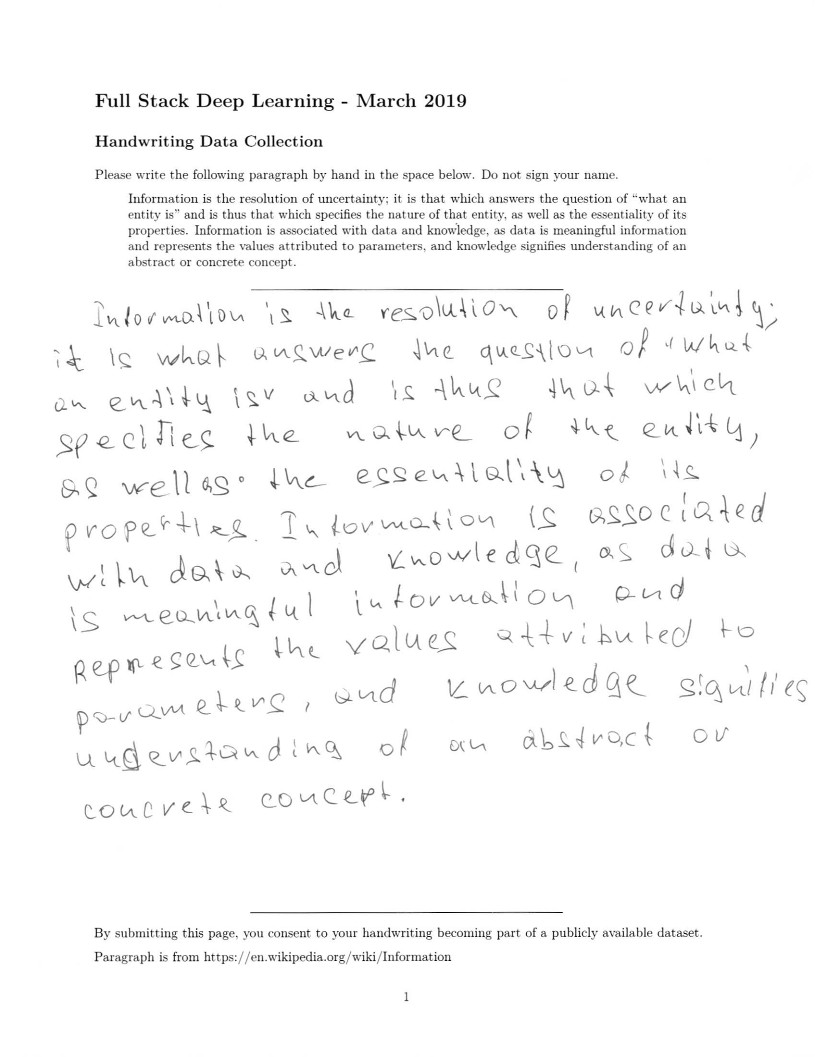 Full Stack Deep Learning - March 2019
Handwriting Data Collection
Please write the following paragraph by hand in the space below. Do not sign your name.
Information is the resolution of uncertainty; it is that which answers the question of “what an
entity is” and is thus that which specifies the nature of that entity, as well as the essentiality of its
properties. Information is associated with data and knowledge, as data is meaningful information
and represents the values attributed to parameters, and knowledge signifies understanding of an
abstract or concrete concept.
Information is the resolution of uncertainty;
it is what answers the question of "what
an entity is" and is thus that which
specifies the nature of the entity,
as well as the essentiality of its
properties. Information is associated
with data and knowledge, as data
is meaningful information and
represents the values attributed to
parameters, and knowledge signifies
understanding of an abstract or
concrete concept.
By submitting this page, you consent to your handwriting becoming part of a publicly available dataset.
Paragraph is from https://en.wikipedia.org/wiki/Information
1